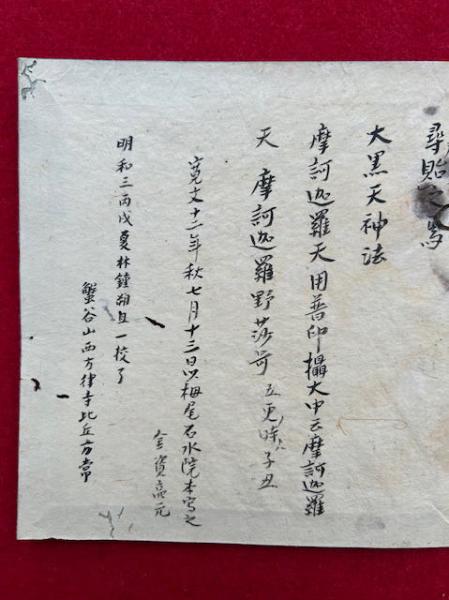 大黒天神法
摩訶迦羅天用普印攝大中云摩訶迦羅
天 摩訶迦羅野莎訶 五更時子丑
寛文十二年秋七月十三日以栂尾石水院本写之
金資
明和三丙戌夏林鐘朔旦一校了
蟹谷山西方律寺比丘方常